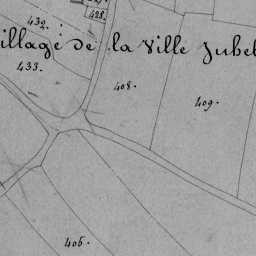 428.
432.
illage de la Ville Jubel
433.
408.
409.
406.